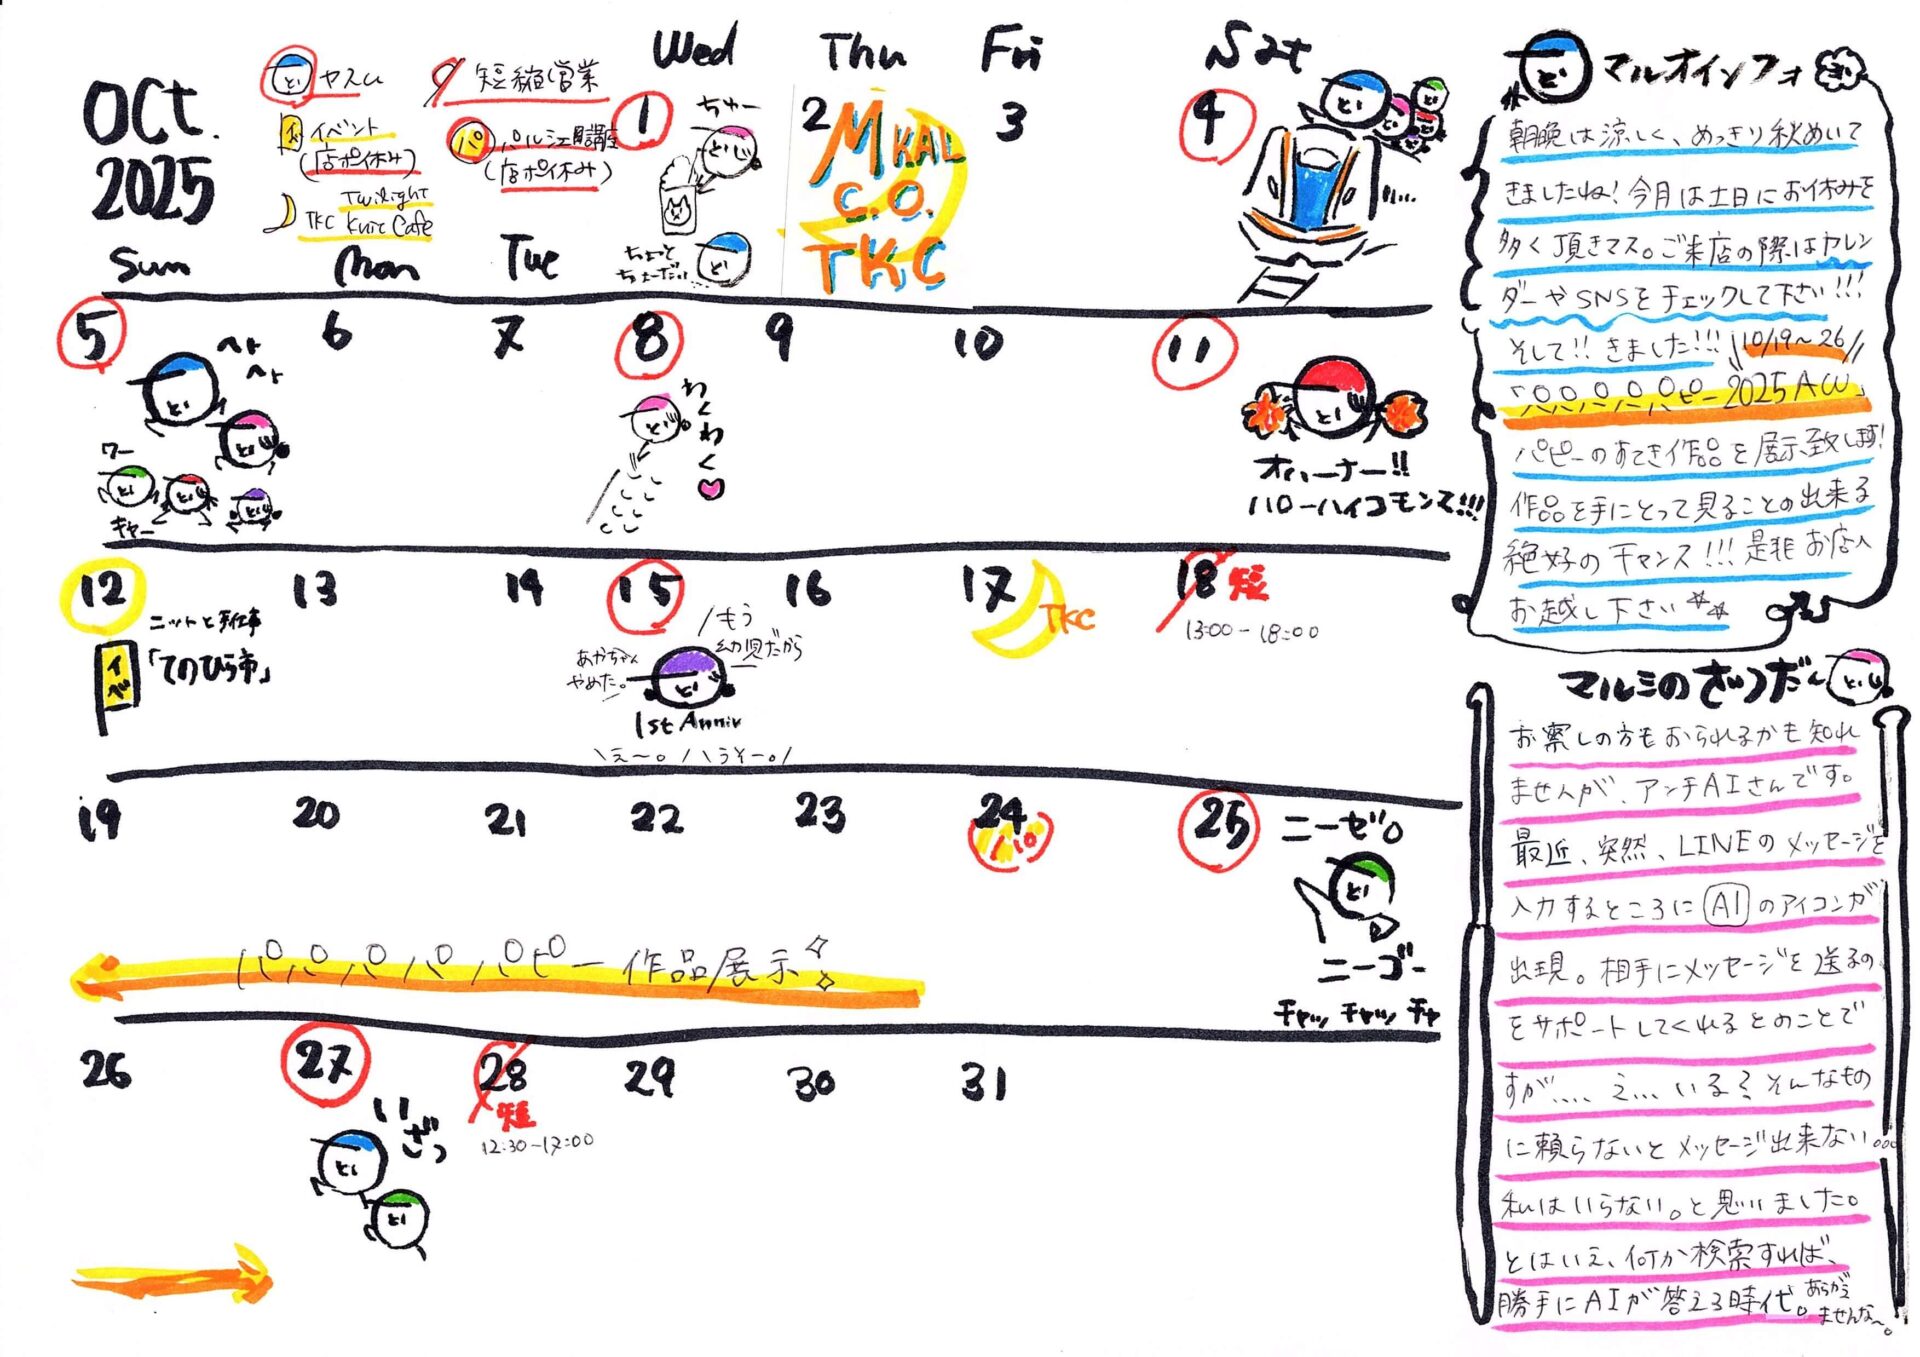 OCT.
2025
ヤスム
短縮営業
イベント
(店ポイ休み)
パ パルシェ講座
(店ポイ休み)
TKC
Twilight
Knit Cafe
Sun
Mon
Tue
Wed
Thu
Fri
Sat
1
ちゅー
ちょっと
ちょーだい
2
MKAL
C.O.
TKC
3
4
5
へと
へと
ワー
キャー
6
7
8
わくわく
9
10
11
オハーナー!!
ハローハイコモンマ!!!
12
ニットと手仕事
「てのひら市」
イベ
13
14
15
もう
幼児だから
あかちゃん
やめた。
1st Anniv
\え〜。/\うそー。/
16
17
TKC
18 短
13:00-18:00
19
20
21
22
23
24
25
ニーゼロ
ニーゴー
チャッ チャッ チャ
パパパパパピー 作品展示
26
27
いざっ
28
短
12:30-17:00
29
30
31
マルオインフォ
朝晩は涼しく、めっきり秋めいて
きましたね!今月は土日にお休みを
多く頂きマス。ご来店の際はカレン
ダーやSNSをチェックして下さい!!!
そして!!きました!!! \\10/19〜26//
「パパパパパピー2025AW」
パピーのすてき作品を展示致します!
作品を手にとって見ることの出来る
絶好のチャンス!!!是非お店へ
お越し下さい
マルミのざつだ〜ん
お察しの方もおられるかも知れ
ませんが、アンチAIさんです。
最近、突然、LINEのメッセージを
入力するところにAIのアイコンが
出現。相手にメッセージを送るの
をサポートしてくれるとのことで
すが....え...いる?そんなもの
に頼らないとメッセージ出来ない...
私はいらない。と思いました。
とはいえ、何か検索すれば、
勝手にAIが答える時代。あらがえ
ませんな〜。